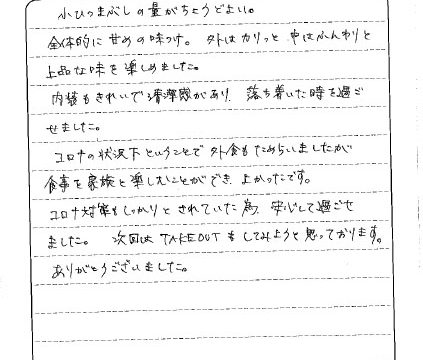 小ひつまぶしの量がちょうどよい。
全体的に甘めの味つけ。外はカリッと中はふんわりと
上品な味を楽しめました。
内装もきれいで清潔感があり、落ち着いた時を過ご
せました。
コロナの状況下ということで外食もためらいましたが
食事を家族と楽しむことができ、よかったです。
コロナ対策もしっかりとされていた為、安心して過ごせ
ました。次回はTAKEOUTもしてみようと思っております。
ありがとうございました。